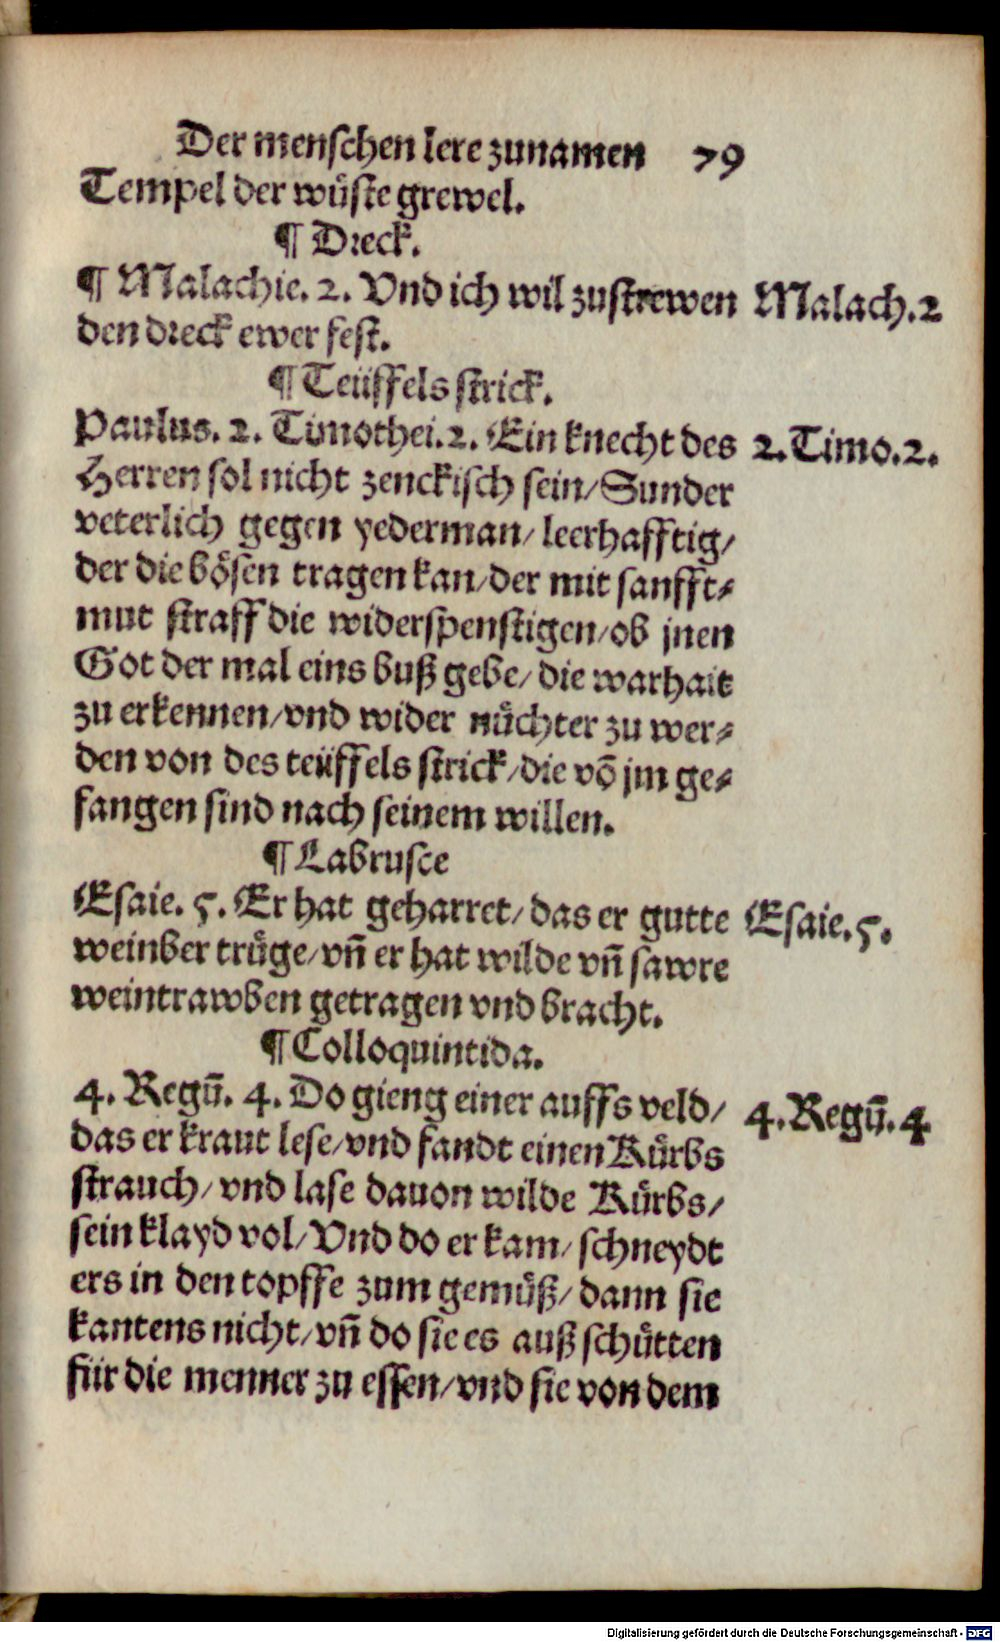 Der menschen lere zunamen 79
Tempel der wüste grewel.
¶ Dreck.
¶ Malachie. 2. Vnd ich wil zustrewen Malach. 2
den dreck ewer fest.
¶ Teüffels strick.
Paulus. 2. Timothei. 2. Ein knecht des 2. Timo. 2.
Herren sol nicht zenckisch sein/ Sunder
veterlich gegen yederman/ leerhafftig/
der die bösen tragen kan/ der mit sanfft⸗
mut straff die widerspenstigen/ ob jnen
Got der mal eins buß gebe/ die warhait
zu erkennen/ vnd wider nüchter zu wer⸗
den von des teüffels strick/ die võ jm ge⸗
fangen sind nach seinem willen.
¶ Labrusce
Esaie. 5. Er hat geharret/ das er gutte Esaie. 5.
weinber trüge/ vñ er hat wilde vñ sawre
weintrawben getragen vnd bracht.
¶ Colloquintida.
4. Regū. 4. Do gieng einer auffs veld/ 4. Regū. 4
das er kraut lese/ vnd fandt einen Kürbs
strauch/ vnd lase dauon wilde Kürbs/
sein klayd vol/ Vnd do er kam/ schneydt
ers in den topffe zum gemüß/ dann sie
kantens nicht/ vñ do sie es auß schütten
für die menner zu essen/ vnd sie von dem
Digitalisierung gefördert durch die Deutsche Forschungsgemeinschaft - DFG